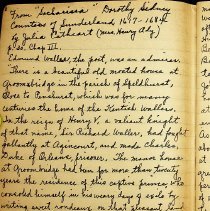 From "Sacharissa" Dorothy Sidney
Countess of Sunderland 1617-1684
by Julia Cartwright (Mrs. Henry Ady)
p. 20. Chap III.
Edmund Waller, the poet, was an admirer.
There is a beautiful old moated house at
Groombridge in the parish of Speldhurst,
close to Penshurst, which was for many
centuries the home of the Kentish Wallers.
In the reign of Henry V, a valiant knight
of that name, Sir Richard Waller, had fought
gallantly at Agincourt, and made Charles,
Duke of Orleans, prisoner. The manor house
at Groombridge had been for more than twenty
years the residence of this captive prince, who
consoled himself in his weary days of exile by
writing sweet rondeaux in that pleasant land